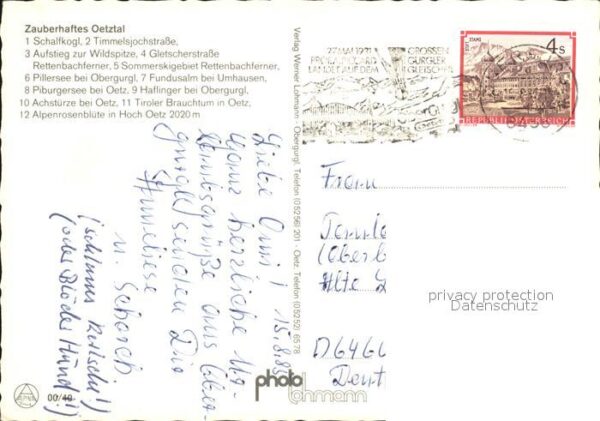 Zauberhaftes Oetztal
1 Schafkogl, 2 Timmelsjochstraße,
3 Aufstieg zur Wildspitze, 4 Gletscherstraße
Rettenbachferner, 5 Sommerskigebiet Rettenbachferner,
6 Pillersee bei Obergurgl, 7 Fundusalm bei Umhausen,
8 Piburgersee bei Oetz, 9 Haflinger bei Obergurgl,
10 Achstürze bei Oetz, 11 Tiroler Brauchtum in Oetz,
12 Alpenrosenblüte in Hoch Oetz 2020 m
Verlag Werner Lohmann · Obergurgl, Telefon (05256) 201 · Oetz, Telefon (05252) 6578
27. MAI 1931
PROF. PICCARD
LANDET AUF DEM
GROSSEN
GURGLER
GLETSCHER
4 S
STIFT STAMS
REPUBLIK ÖSTERREICH
15.8.85
Liebe Omi!
Ganz herzliche Ur-
laubsgrüße aus Ober-
gurgl senden Dir
Anneliese
u. Schorch
(schlimmes
(oder Blöder Hund!)
Frau
(Oberb
Alte
D6460
privacy protection
Datenschutz
00/40
photo
lohmann